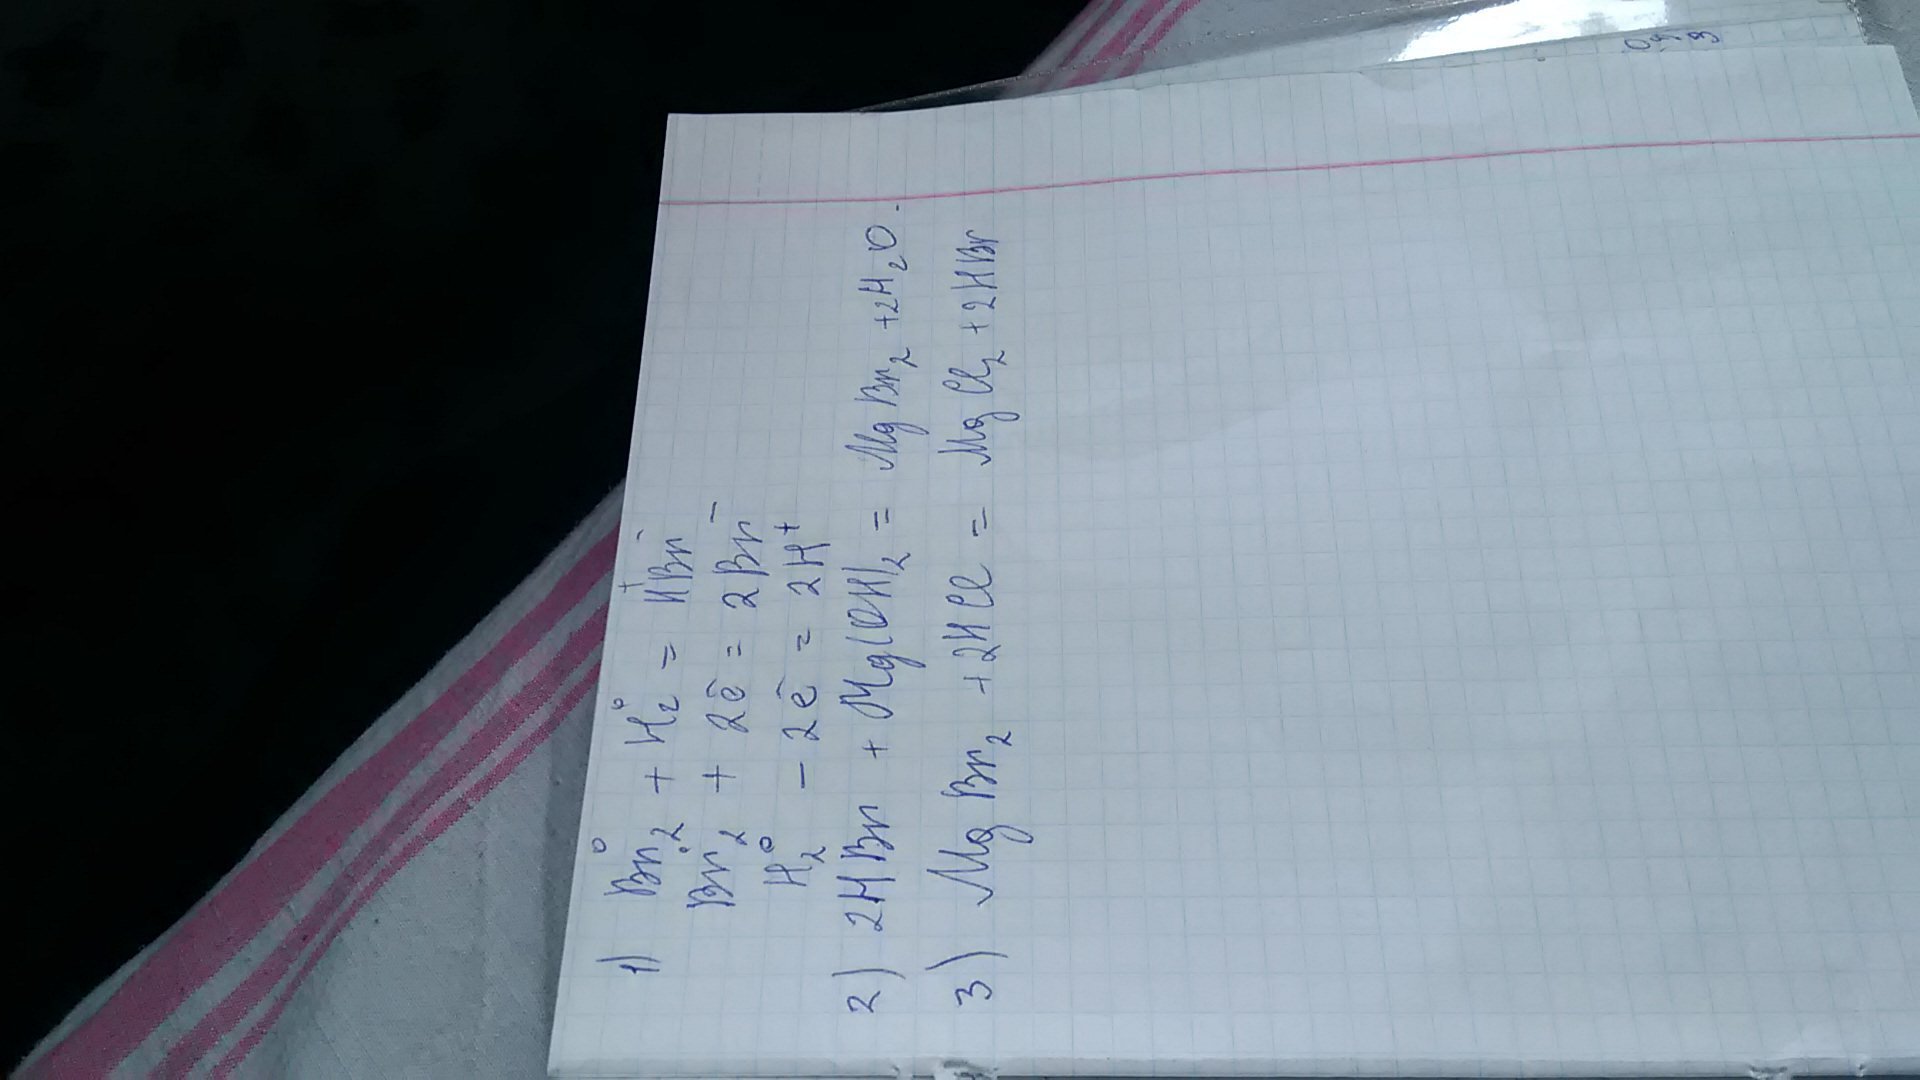 1) Br₂⁰ + H₂⁰ = H⁺Br⁻
Br₂ + 2ē = 2Br⁻
H₂⁰ - 2ē = 2H⁺
2) 2HBr + Mg(OH)₂ = MgBr₂ + 2H₂O.
3) MgBr₂ + 2HCl = MgCl₂ + 2HBr